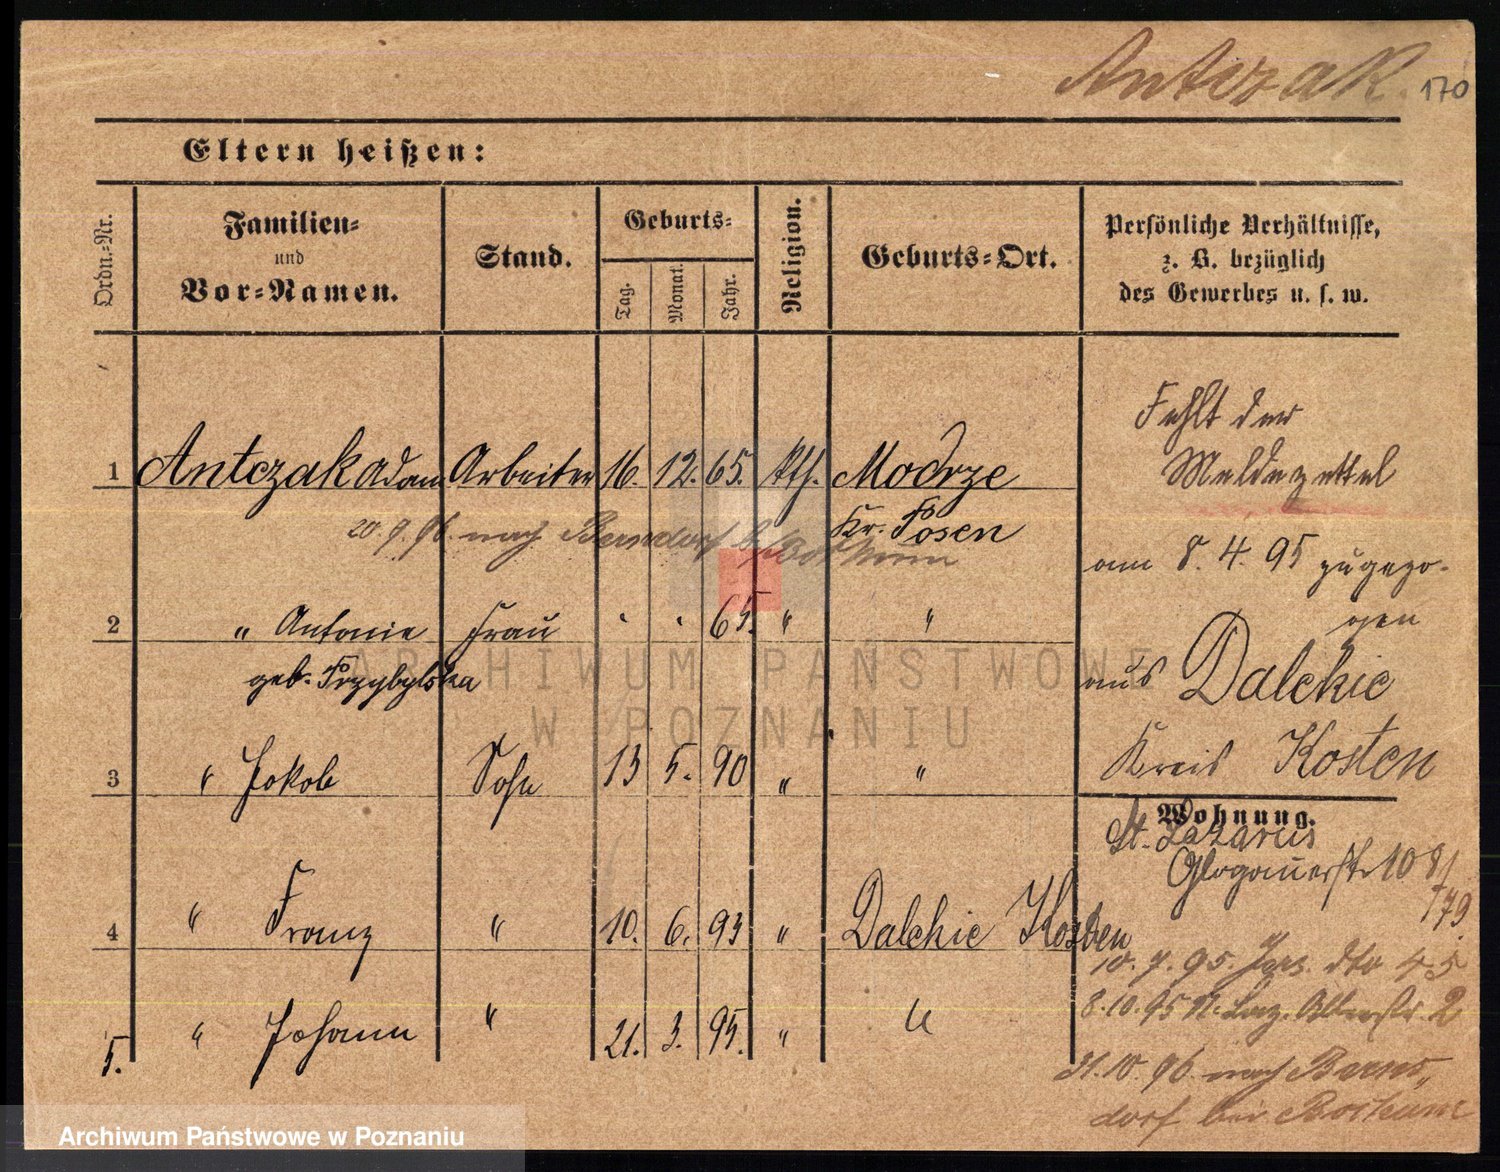 Antczak. 170
Eltern heißen:
Ordn.-Nr.
Familien-
und
Vor-Namen.
Stand.
Geburts-
Tag.
Monat.
Jahr.
Religion.
Geburts-Ort.
Persönliche Verhältnisse,
z. B. bezüglich
des Gewerbes u. s. w.
Fehlt der
Meldezettel
1 Antczak Adam Arbeiter 16. 12. 65. kth. Modrze
Kr. Posen
20. 9. 96. nach Berndorf b/Bochum
am 8. 4. 95 zugezo-
gen
2 " Antonie Frau " " 65. " "
geb. Przybylska
aus Dalekie
Kreis Kosten
3 " Jakob Sohn 13 5. 90 " "
Wohnung.
St. Lazarus
Glogauerstr 108/
179.
4 " Franz " 10. 6. 93 " Dalekie Kosten
10. 7. 95. dto 45
8. 10. 95 St. Laz. 2
5. " Johann " 21. 3. 95. " "
31. 10. 96. nach Berns-
dorf bei Bochum
ARCHIWUM PAŃSTWOWE
W POZNANIU
Archiwum Państwowe w Poznaniu